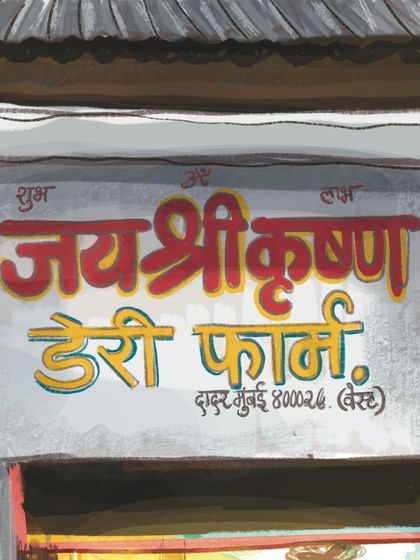 शुभ ॐ लाभ
जय श्री कृष्ण
डेरी फार्म.
दादर मुंबई ४०००२८. (वेस्ट)